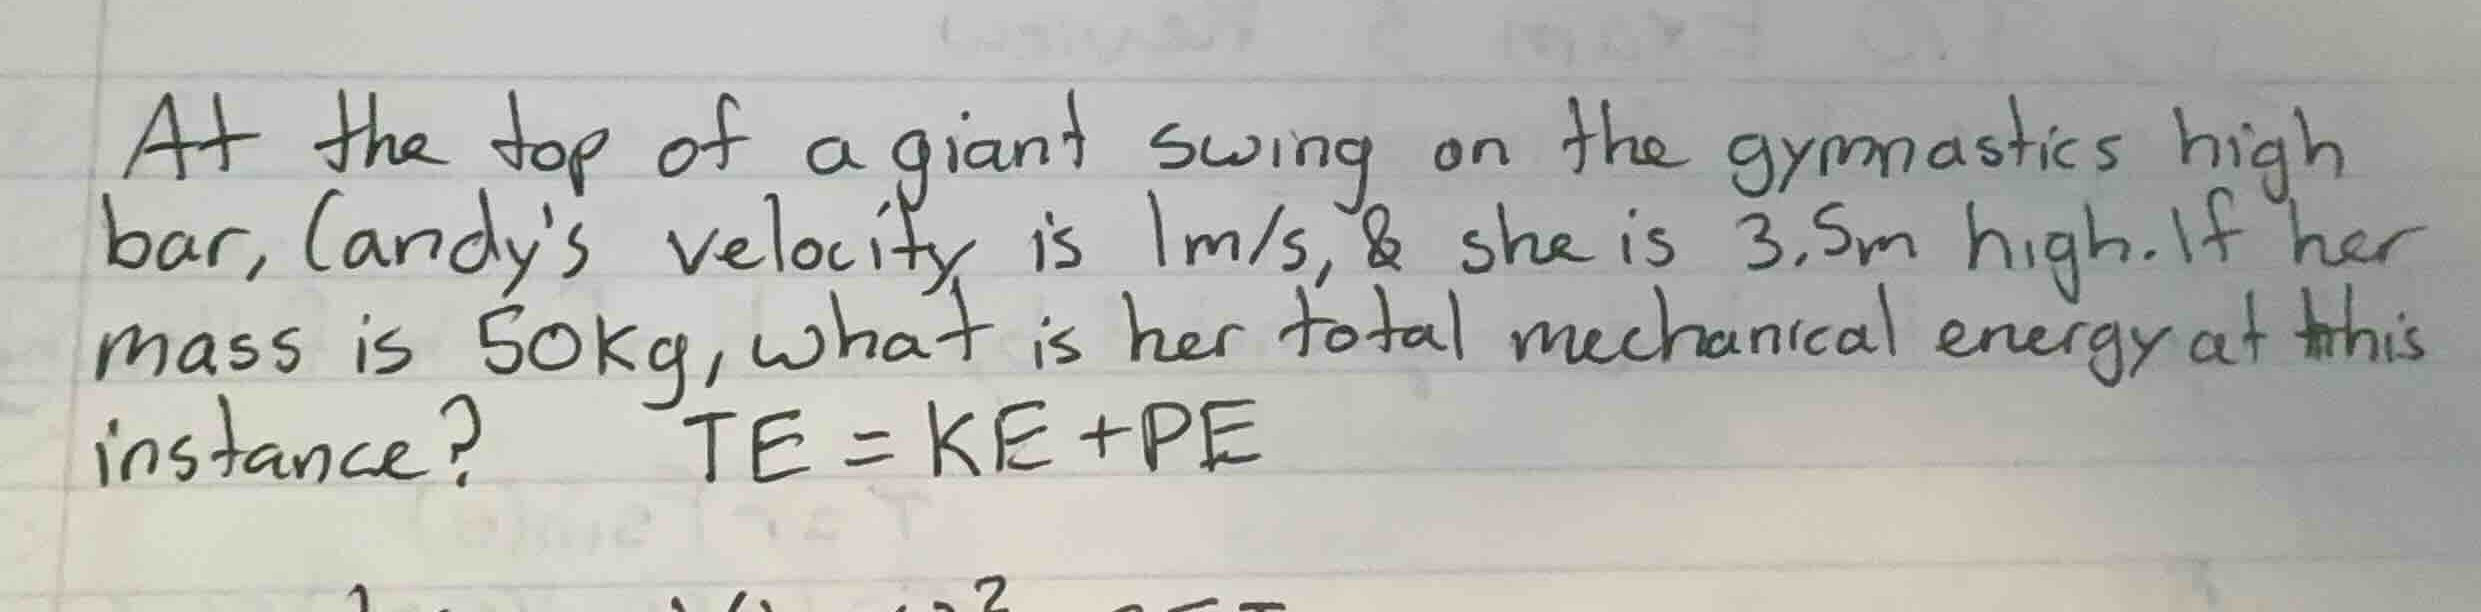 At the top of a giant swing on the gymnastics high
bar, Candy's velocity is 1m/s, & she is 3.5m high. If her
mass is 50kg, what is her total mechanical energy at this
instance? TE = KE + PE